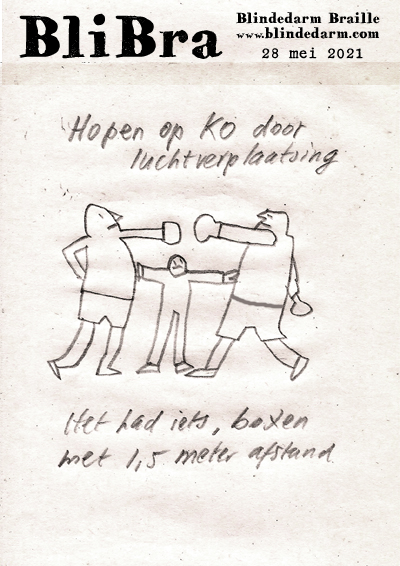 BliBra
Blindedarm Braille
www.blindedarm.com
28 mei 2021
Hopen op KO door
luchtverplaatsing
Het had iets, boxen
met 1,5 meter afstand